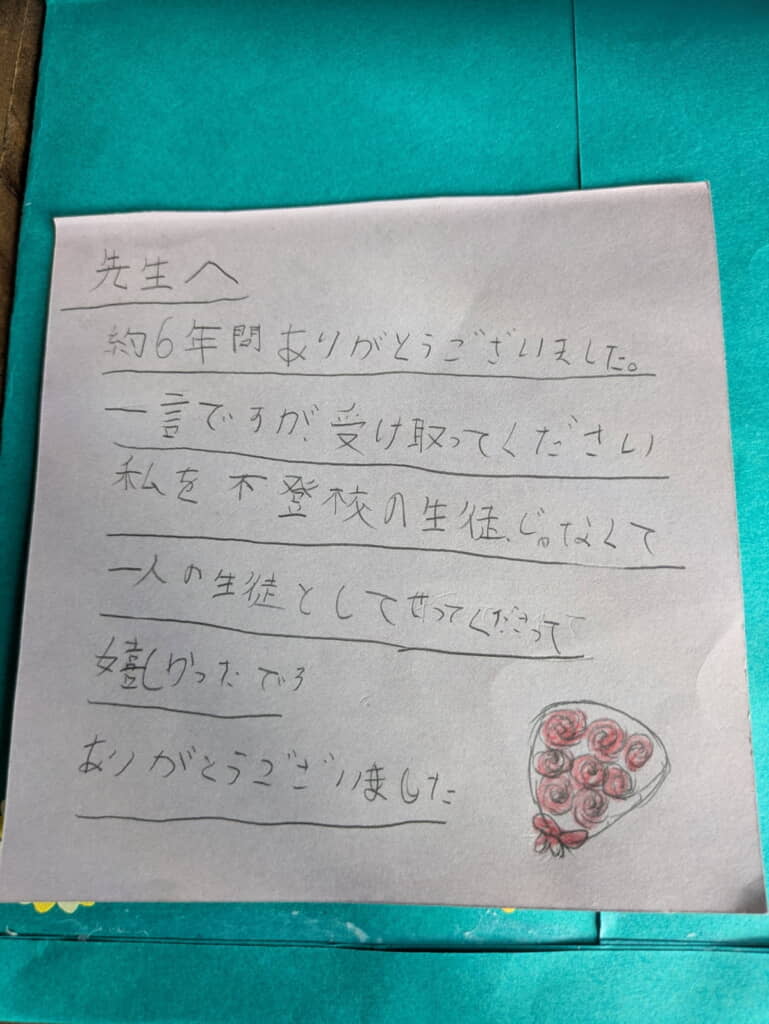 先生へ
約6年間ありがとうございました。
一言ですが、受け取ってください
私を不登校の生徒、じゃなくて
一人の生徒としてせってくださって
嬉しかったです
ありがとうございました